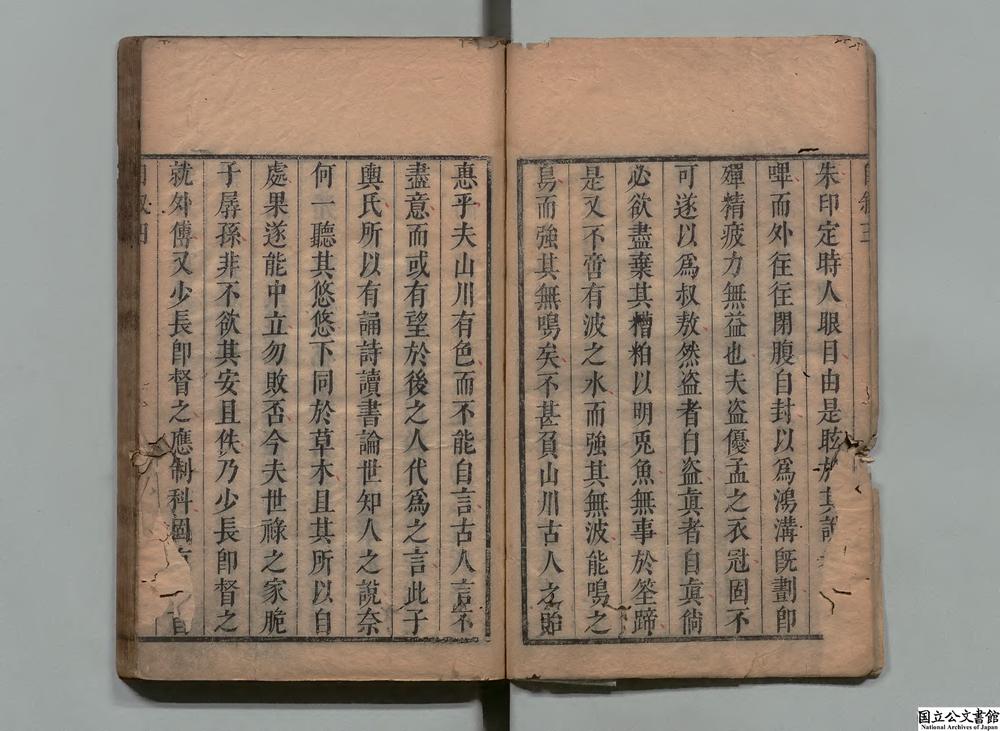 朱印定時人眼目由是眩於其說
嘩而外往往閉腹自封以爲鴻溝旣劃卽
殫精疲力無益也夫盗優孟之衣冠固不
可遂以爲叔敖然盗者自盗眞者自眞倘
必欲盡棄其糟粕以明兎魚無事於筌蹄
是又不啻有波之水而強其無波能鳴之
鳥而強其無鳴矣不甚負山川古人之貽
惠乎夫山川有色而不能自言古人言不
盡意而或有望於後之人代爲之言此子
輿氏所以有誦詩讀書論世知人之說奈
何一聽其悠悠下同於草木且其所以自
處果遂能中立勿敗否今夫世祿之家脆
子孱孫非不欲其安且佚乃少長卽督之
就外傅又少長卽督之應制科固
自叙四
国立公文書館
National Archives of Japan